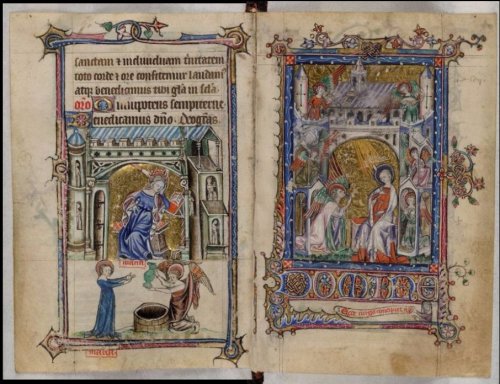 sanctam ⁊ indiuiduam trinitatem
toto corde ⁊ ore confitemur laudam
atq benedicamus tibi gl̄a in
oro Omnipotens sempiterne
Benedicamus dn̄o Deo gr̄as
DOMINE